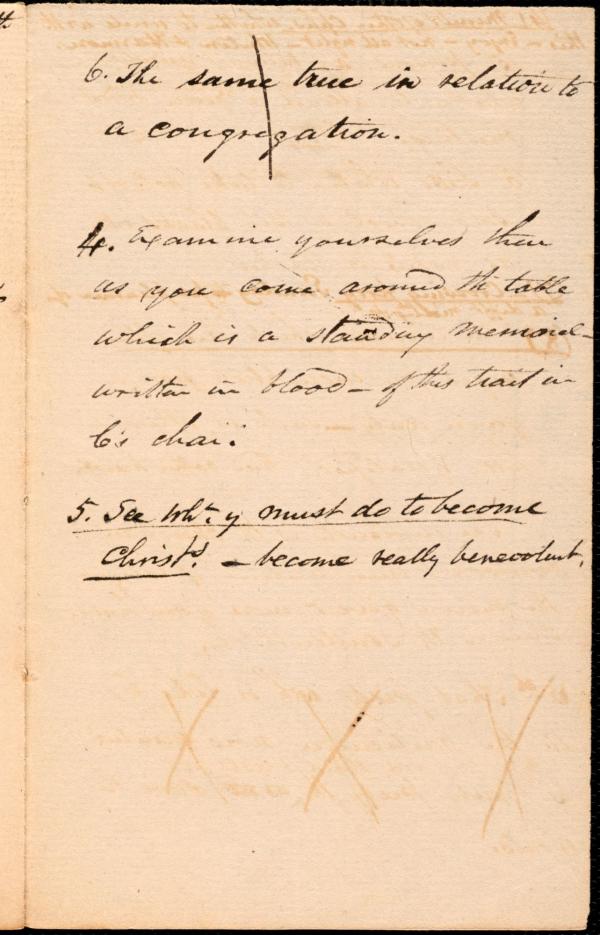 6. The same true in relation to
a congregation.
4. Examine yourselves then
as you come around th table
which is a standing memorial
written in blood – of this trait in
C's char:
5. See wht. y must do to become
Christs. – become really benevolent.